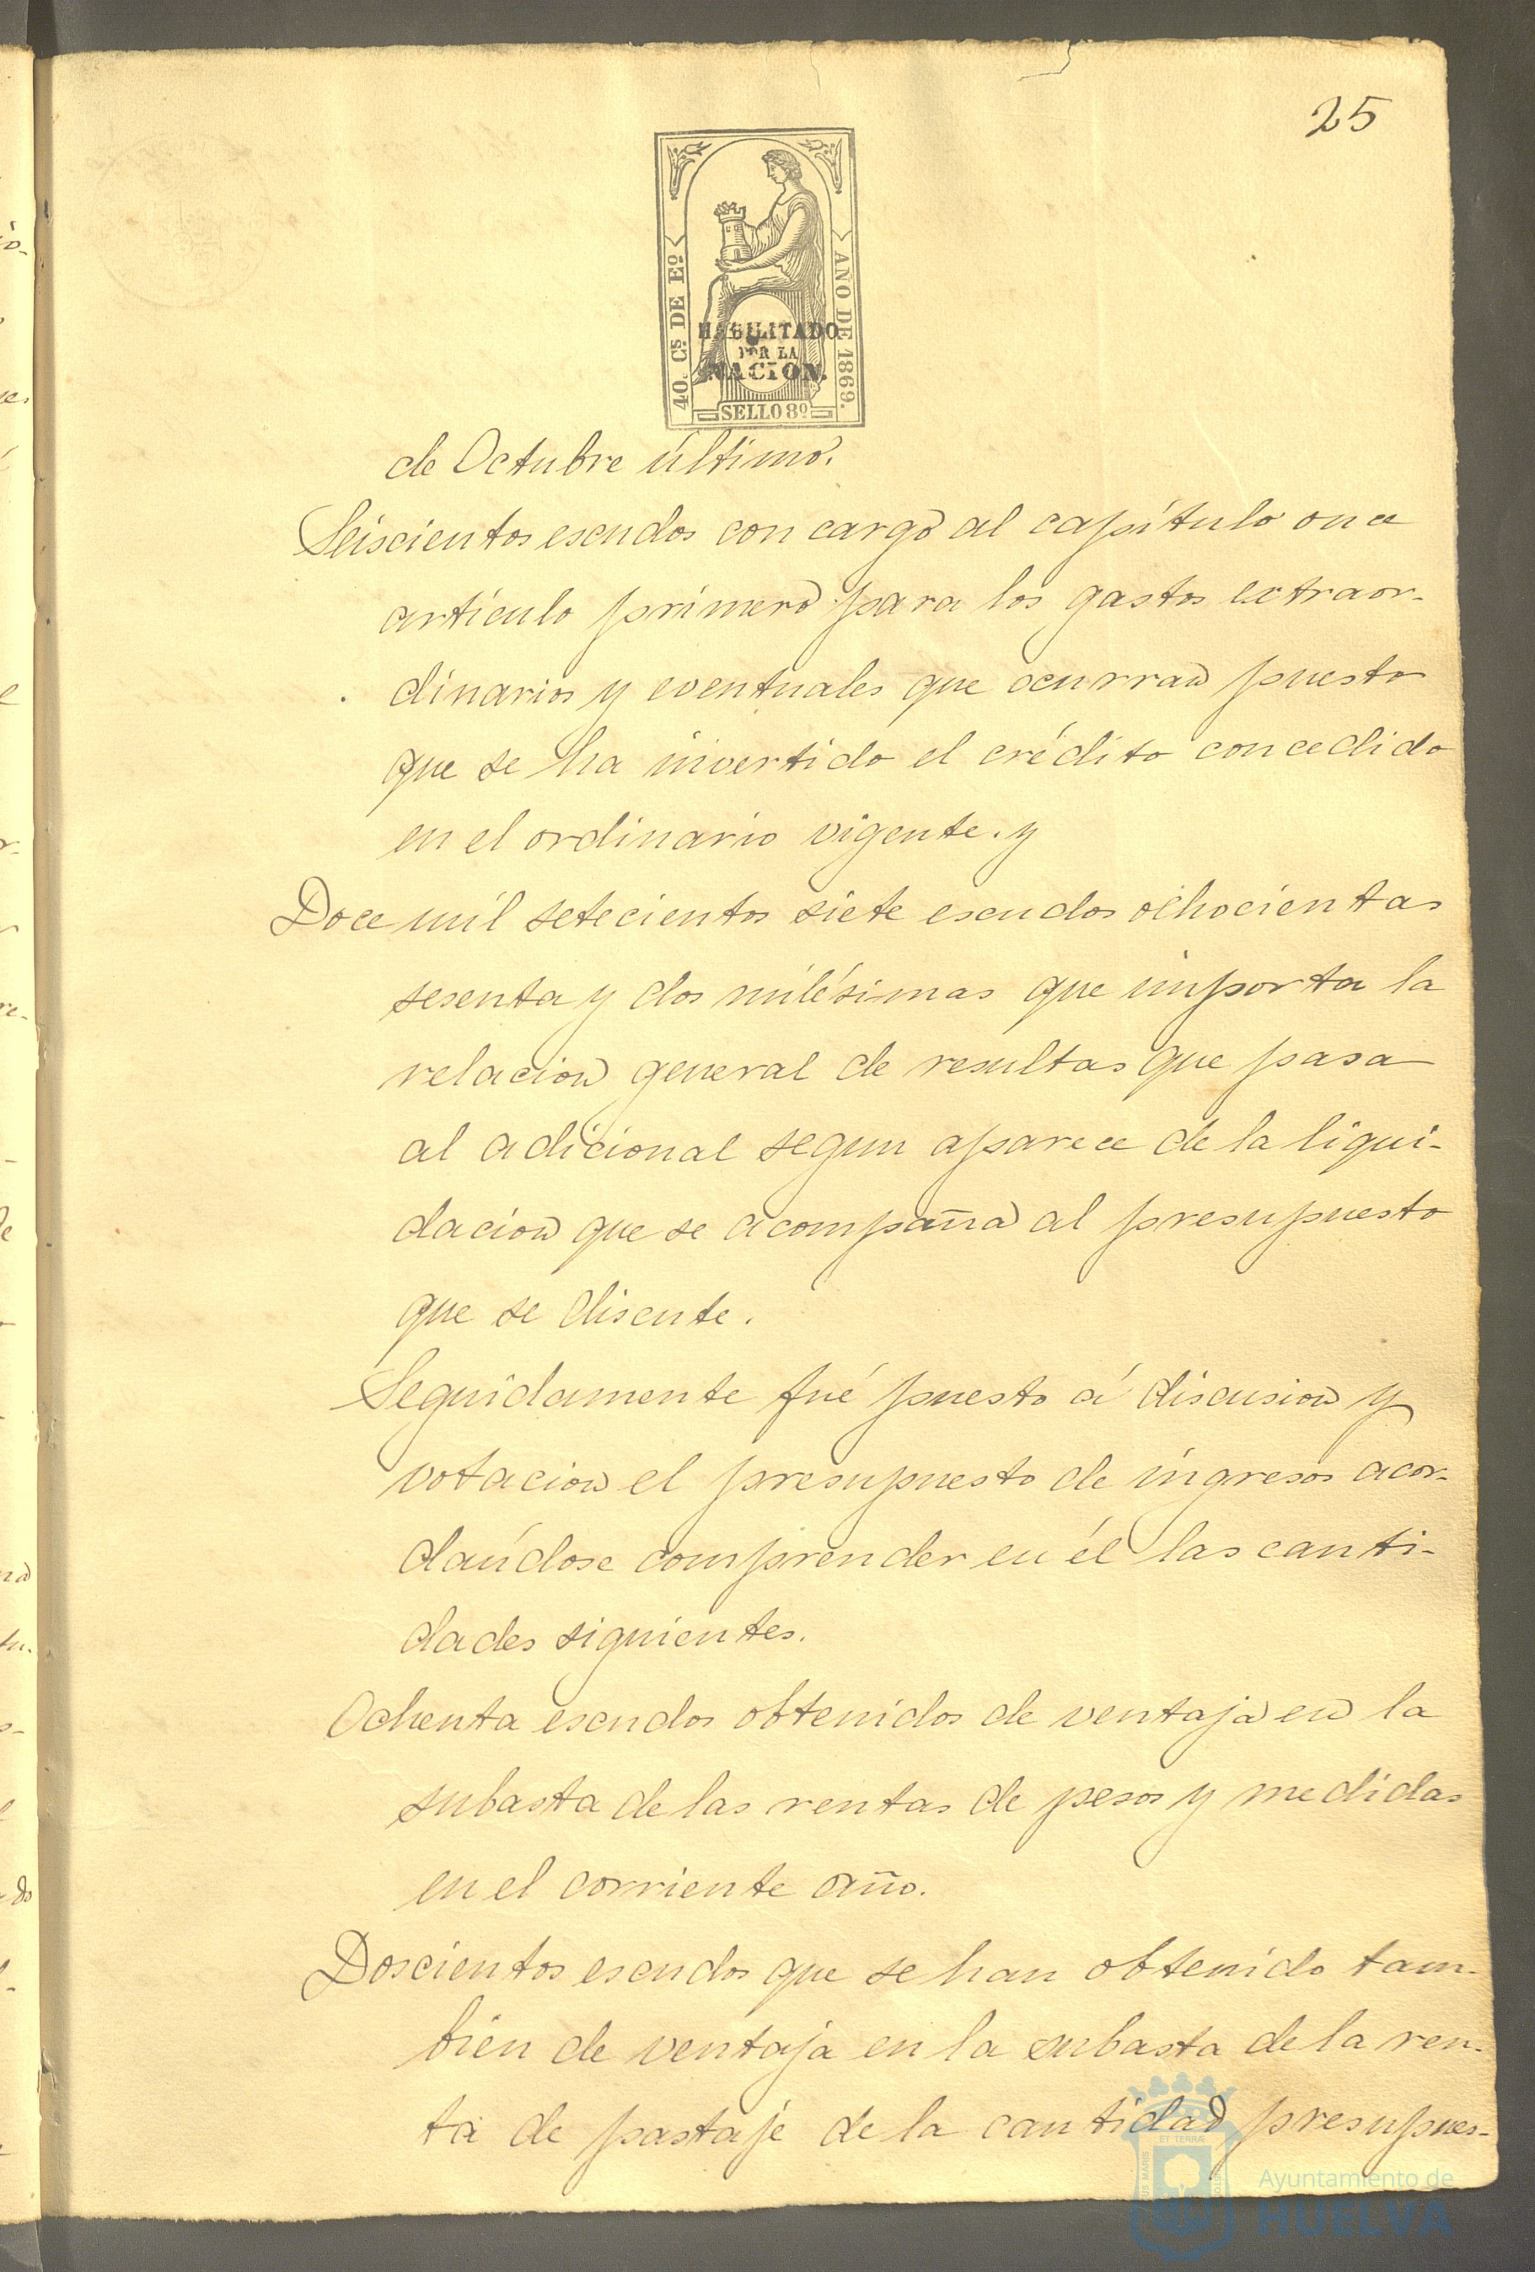 25
40. Cs. DE Eº.
AÑO DE 1869.
HABILITADO
POR LA
NACION.
SELLO 8º
de Octubre último.
Seiscientos escudos con cargo al capítulo once
artículo primero para los gastos extraor-
dinarios y eventuales que ocurran puesto
que se ha invertido el crédito concedido
en el ordinario vigente. y
Doce mil setecientos siete escudos ochocientas
sesenta y dos milésimas que importa la
relacion general de resultas que pasa
al adicional segun aparece de la liqui-
dacion que se acompaña al presupuesto
que se discute.
Seguidamente fué puesto á discusion y
votacion el presupuesto de ingresos acor-
dándose comprender en él las canti-
dades siguientes.
Ochenta escudos obtenidos de ventaja en la
subasta de las rentas de pesos y medidas
en el corriente año.
Doscientos escudos que se han obtenido tam-
bien de ventaja en la subasta de la ren-
ta de pastaje de la cantidad presupues-
Ayuntamiento de
HUELVA